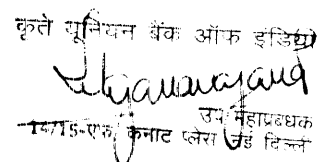 कृते यूनियन बैंक ऑफ इंडिया
उप महाप्रबंधक
14/15-एफ, कनाट प्लेस नई दिल्ली